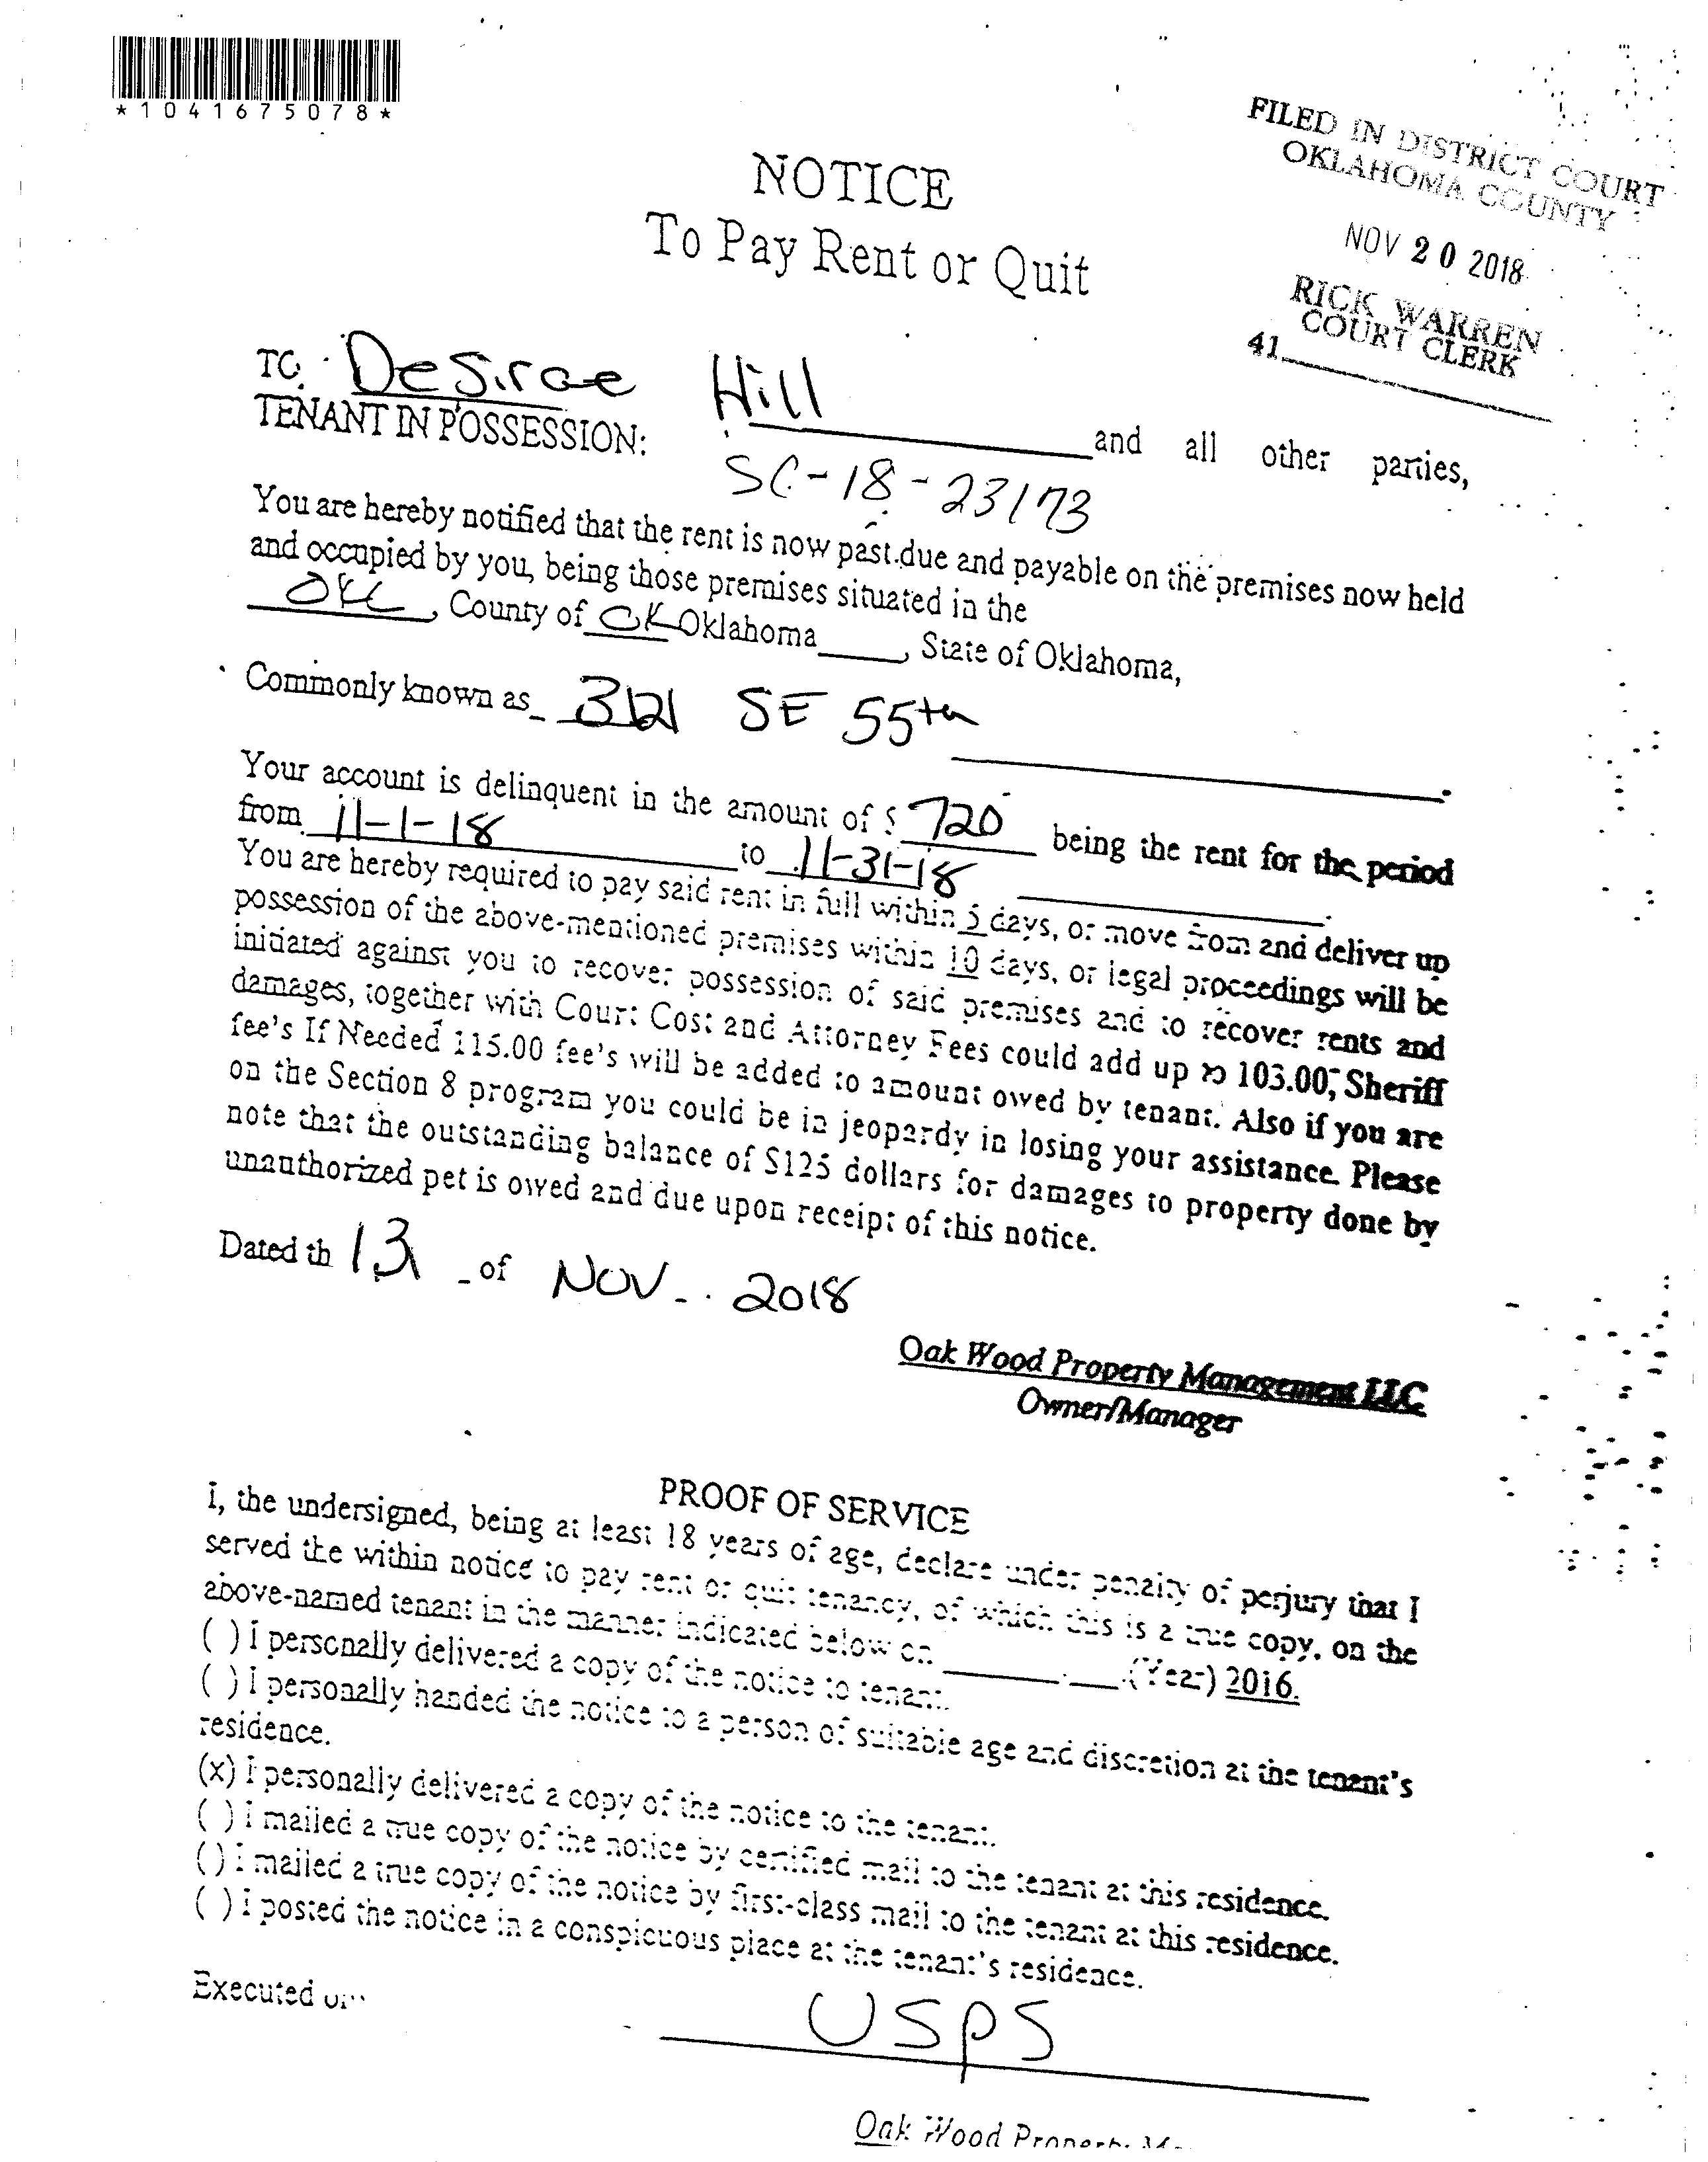 *1041675078*
FILED IN DISTRICT COURT
OKLAHOMA COUNTY
NOV 20 2018
RICK WARREN
COURT CLERK
41
NOTICE
To Pay Rent or Quit
TO: Desirae Hill
TENANT IN POSSESSION: and all other parties,
SC-18-23173
You are hereby notified that the rent is now past due and payable on the premises now held
and occupied by you, being those premises situated in the
OKC, County of OK Oklahoma____, State of Oklahoma,
Commonly known as 3121 SE 55th
Your account is delinquent in the amount of $ 720 being the rent for the period
from 11-1-18 to 11-31-18
You are hereby required to pay said rent in full within 5 days, or move from and deliver up
possession of the above-mentioned premises within 10 days, or legal proceedings will be
initiated against you to recover possession of said premises and to recover rents and
damages, together with Court Cost and Attorney Fees could add up to 103.00, Sheriff
fee's If Needed 115.00 fee's will be added to amount owed by tenant. Also if you are
on the Section 8 program you could be in jeopardy in losing your assistance. Please
note that the outstanding balance of $125 dollars for damages to property done by
unauthorized pet is owed and due upon receipt of this notice.
Dated th 13 of NOV. 2018
Oak Wood Property Management LLC
Owner/Manager
PROOF OF SERVICE
I, the undersigned, being at least 18 years of age, declare under penalty of perjury that I
served the within notice to pay rent or quit tenancy, of which this is a true copy, on the
above-named tenant in the manner indicated below on ________ (Year) 2016.
( ) I personally delivered a copy of the notice to tenant.
( ) I personally handed the notice to a person of suitable age and discretion at the tenant's
residence.
(x) I personally delivered a copy of the notice to the tenant.
( ) I mailed a true copy of the notice by certified mail to the tenant at this residence.
( ) I mailed a true copy of the notice by first-class mail to the tenant at this residence.
( ) I posted the notice in a conspicuous place at the tenant's residence.
Executed on
USPS
Oak Wood Property